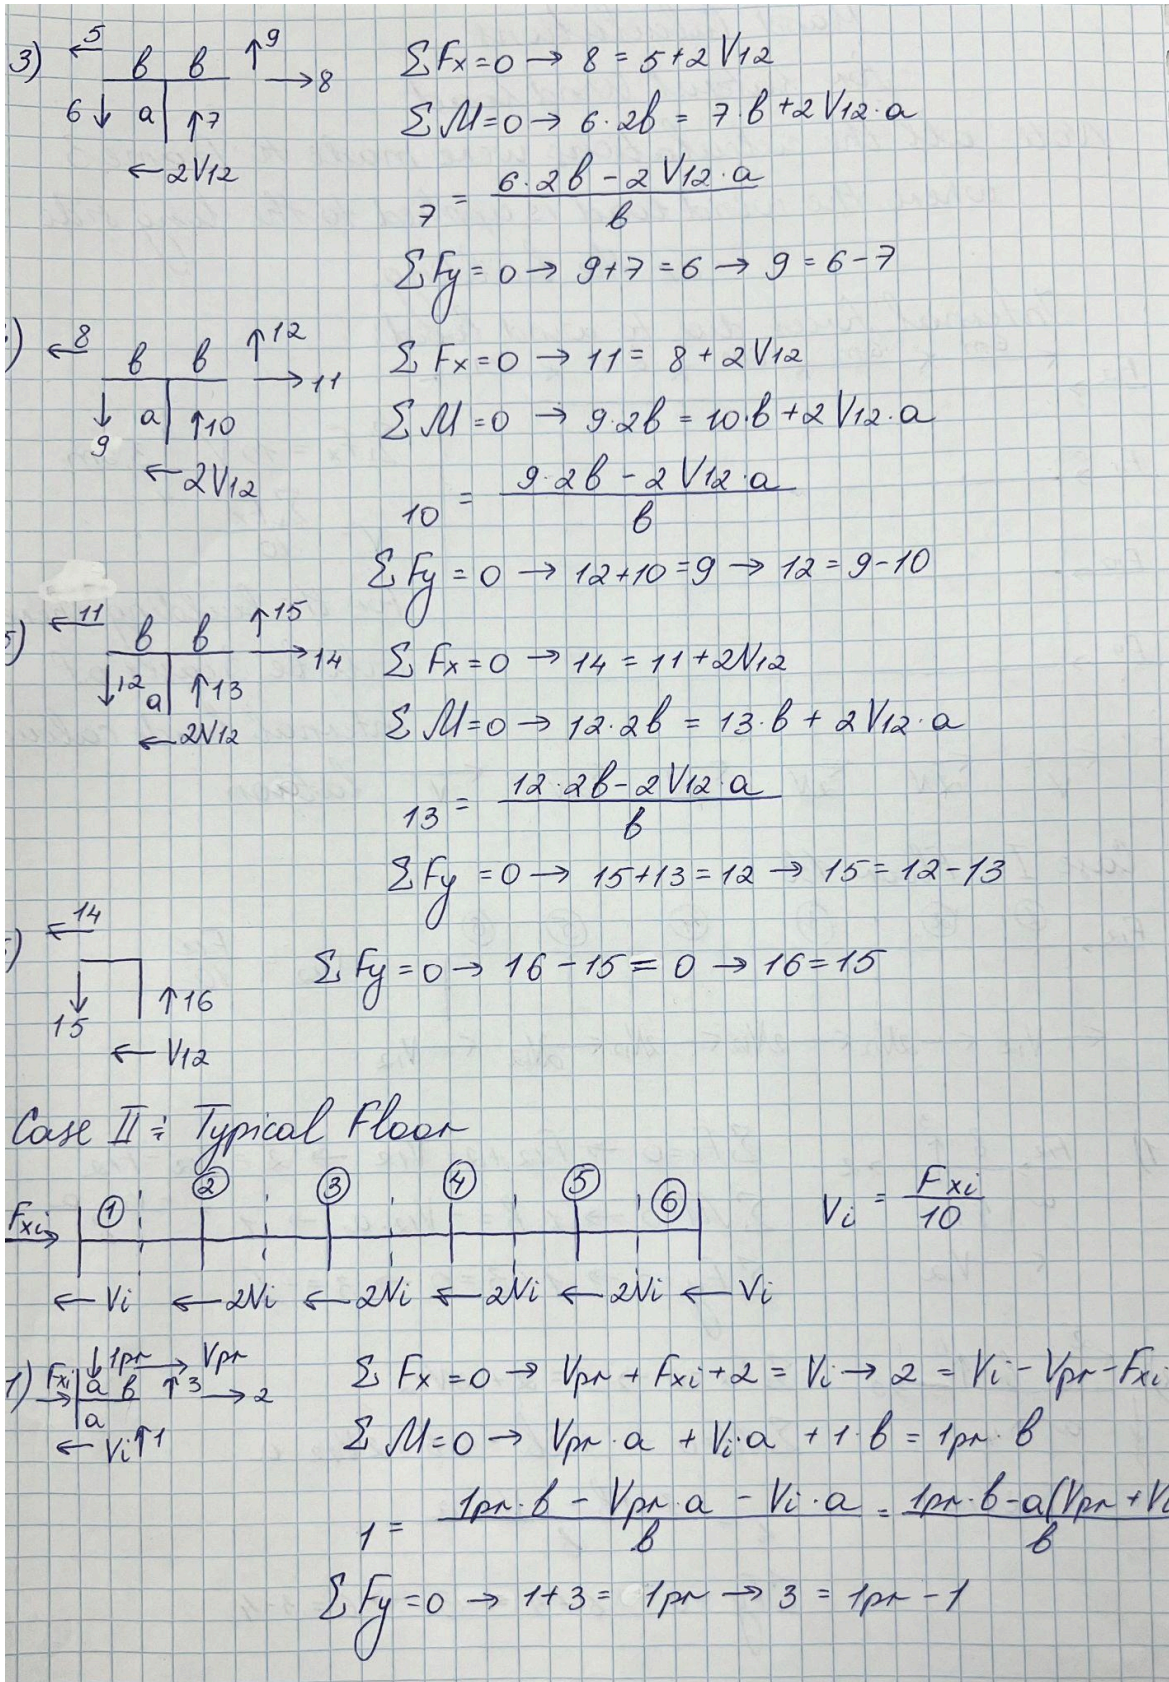 3) 5 b b 9 8
6 a 7
2V12
ΣFx=0 → 8 = 5+2V12
ΣM=0 → 6·2b = 7·b+2V12·a
7 = (6·2b − 2V12·a)/b
ΣFy=0 → 9+7=6 → 9=6−7
) 8 b b 12 11
9 a 10
2V12
ΣFx=0 → 11 = 8+2V12
ΣM=0 → 9·2b = 10·b+2V12·a
10 = (9·2b − 2V12·a)/b
ΣFy=0 → 12+10=9 → 12=9−10
5) 11 b b 15 14
12 a 13
2V12
ΣFx=0 → 14=11+2V12
ΣM=0 → 12·2b = 13·b + 2V12·a
13 = (12·2b−2V12·a)/b
ΣFy=0 → 15+13=12 → 15=12−13
) 14
15 16
V12
ΣFy=0 → 16−15=0 → 16=15
Case II: Typical Floor
Fxi ① ② ③ ④ ⑤ ⑥
← Vi ← 2Vi ← 2Vi ← 2Vi ← 2Vi ← Vi
Vi = Fxi/10
1) Fxi 1pr Vpr
a b 3 2
a
Vi 1
ΣFx=0 → Vpr+Fxi+2=Vi → 2 = Vi−Vpr−Fxi
ΣM=0 → Vpr·a + Vi·a + 1·b = 1pr·b
1 = (1pr·b − Vpr·a − Vi·a)/b = (1pr·b−a(Vpr+Vi)/b
ΣFy=0 → 1+3 = 1pr → 3 = 1pr−1